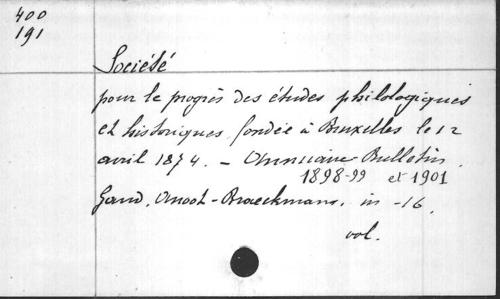 400
191
Société
pour le progrès des études philologiques
et historiques, fondée à Bruxelles le 12
avril 1874. - Annuaire Bulletin.
1898-99 et 1901
Gand, Vnoot-Braeckmans, in -16.
vol.